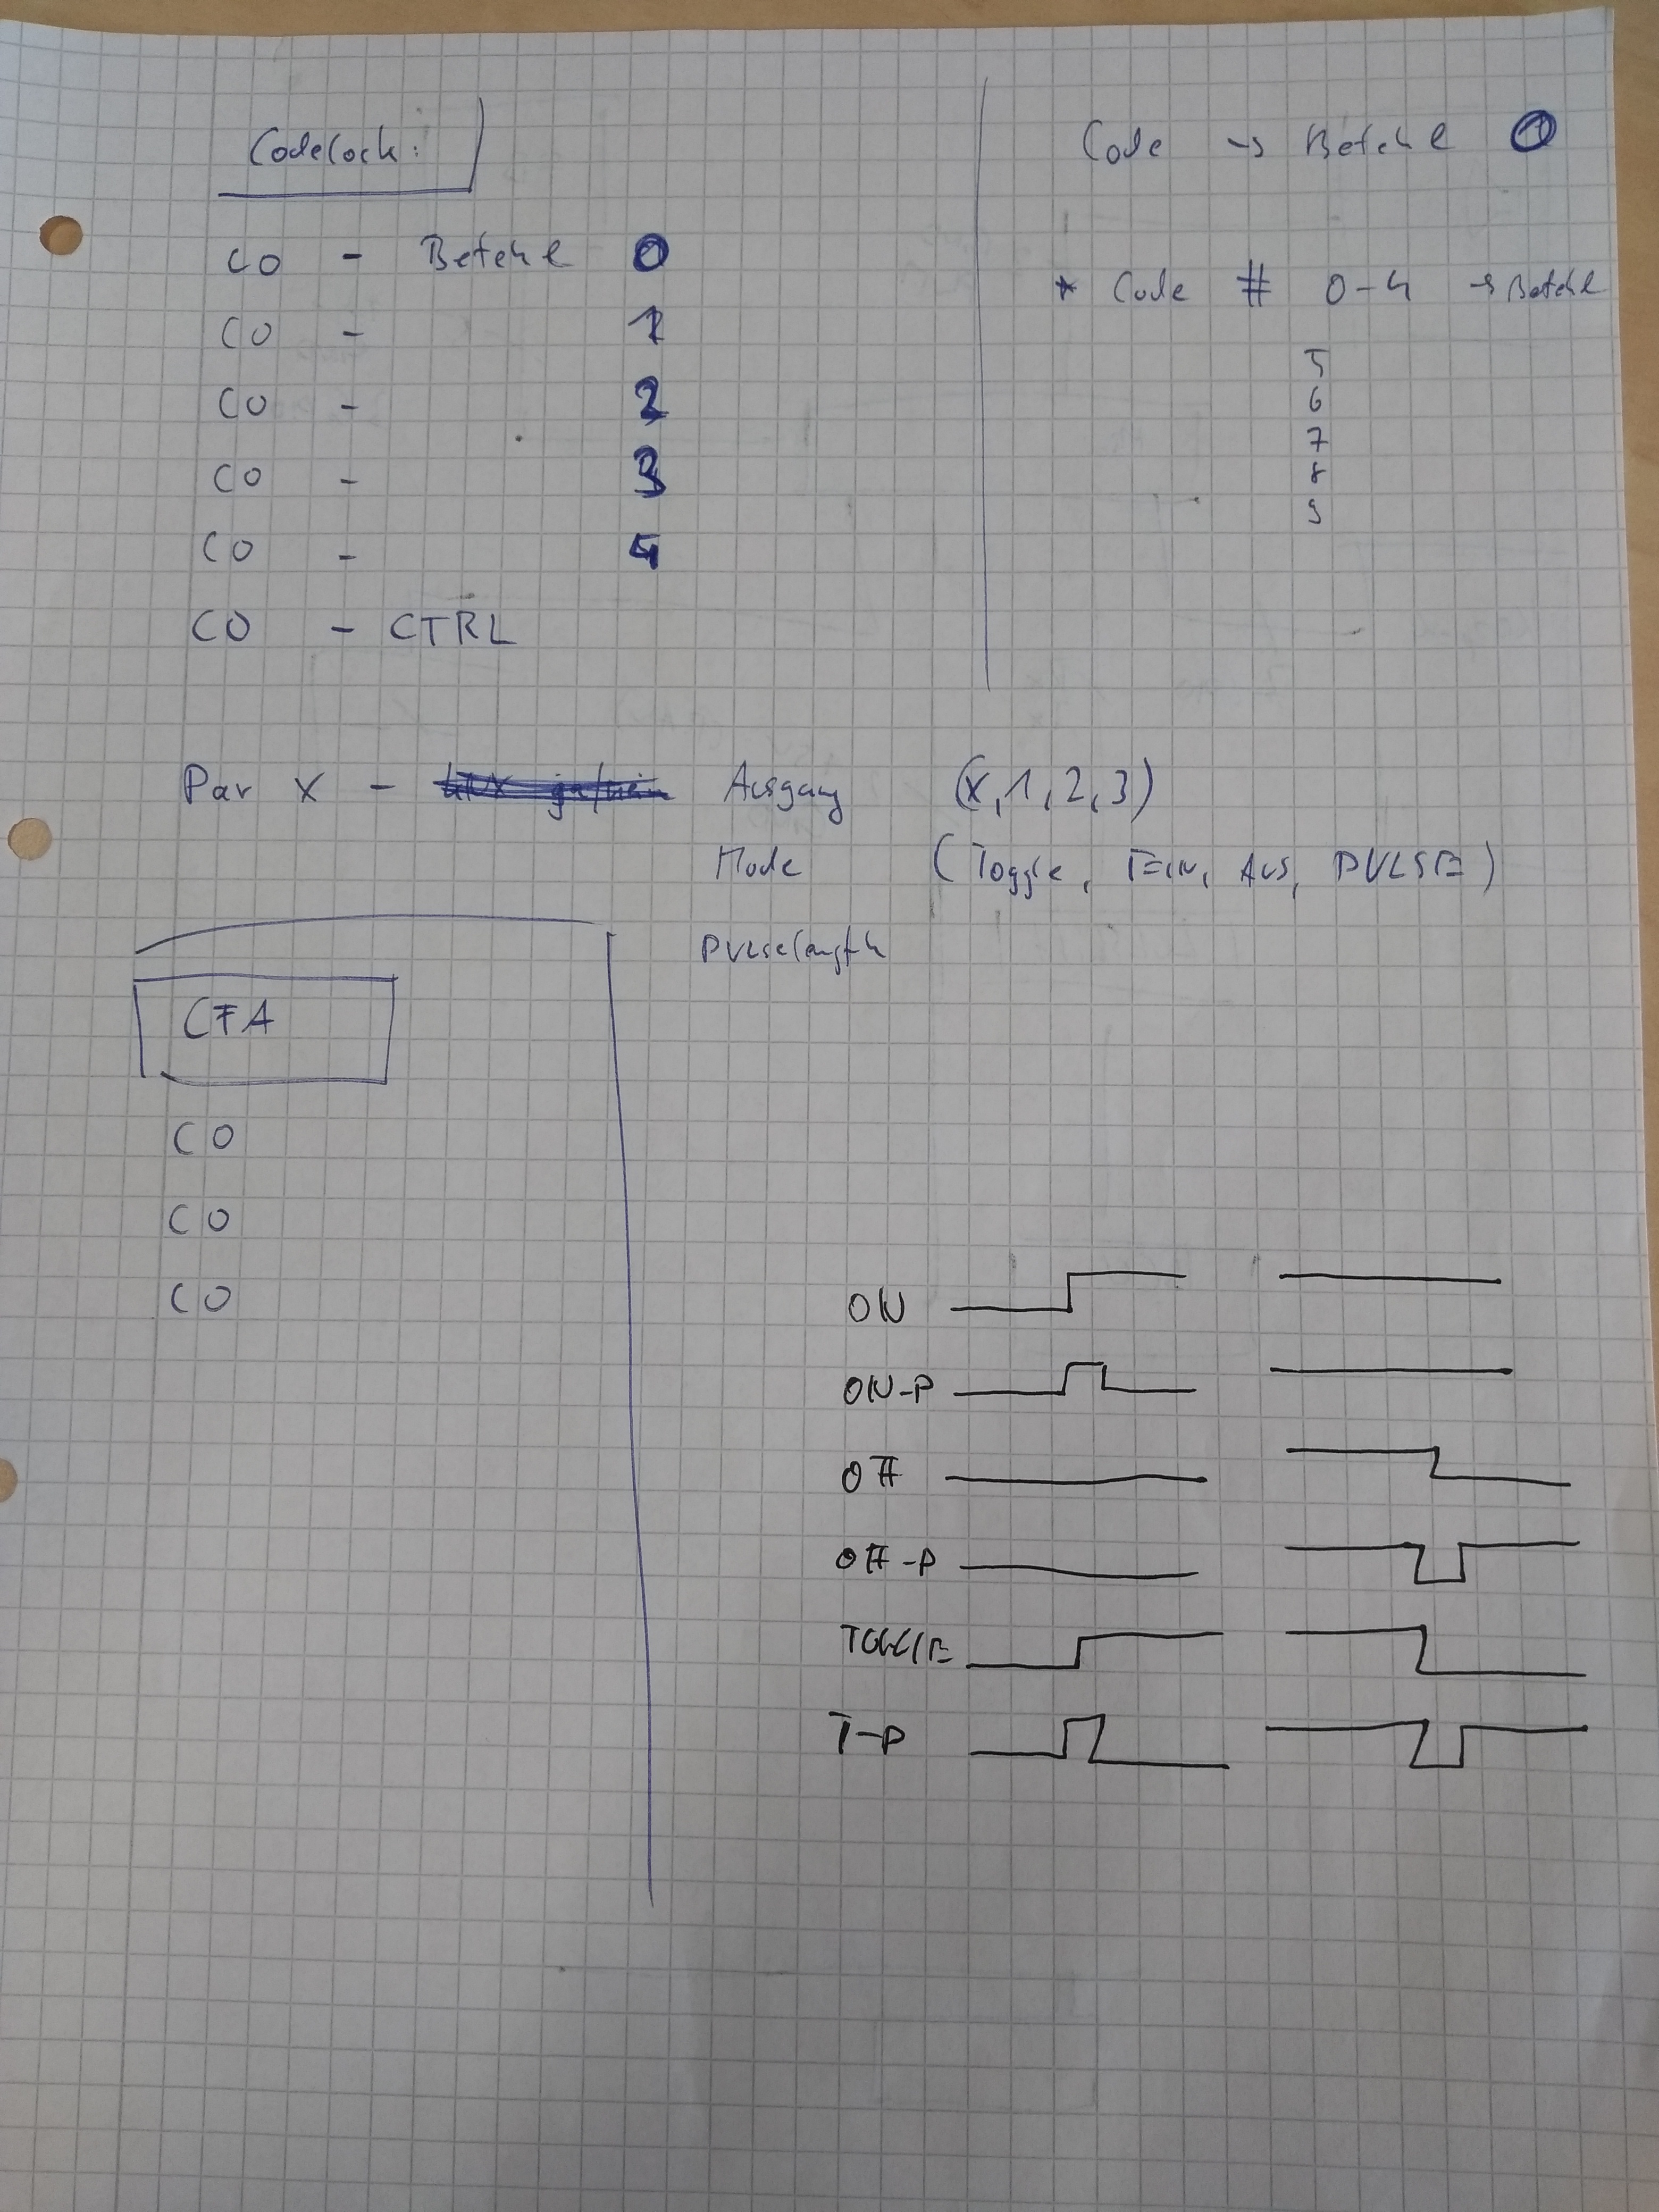 Codelock:
CO - Befehl 0
CO - 1
CO - 2
CO - 3
CO - 4
CO - CTRL
Code → Befehl 0
* Code # 0-4 → Befehl
5
6
7
8
9
Par X - Ausgang (X,1,2,3)
Mode (Toggle, EIN, AUS, PULSE)
Pulselength
CFA
CO
CO
CO
ON
ON-P
OFF
OFF-P
TOGGLE
T-P